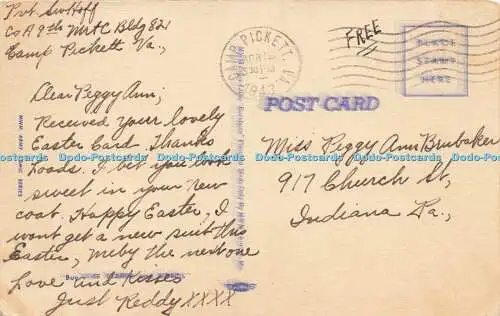 Pvt.
Co A 9th MRTC Bldg 821
Camp Pickett Va.,
Dear Peggy Ann,
Received your lovely
Easter Card. Thanks
Loads. I bet you look
sweet in your new
coat. Happy Easter, I
wont get a new suit this
Easter, Meby the next one
Love and Kisses
Just Reddy XXXX
CAMP PICKETT, VA.
1943
FREE
PLACE
STAMP
HERE
POST CARD
Miss Peggy Ann Brubaker
917 Church St,
Indiana Pa.,
Dodo-Postcards Dodo-Postcards Dodo-Postcards Dodo-Postcards Dodo-Postcards